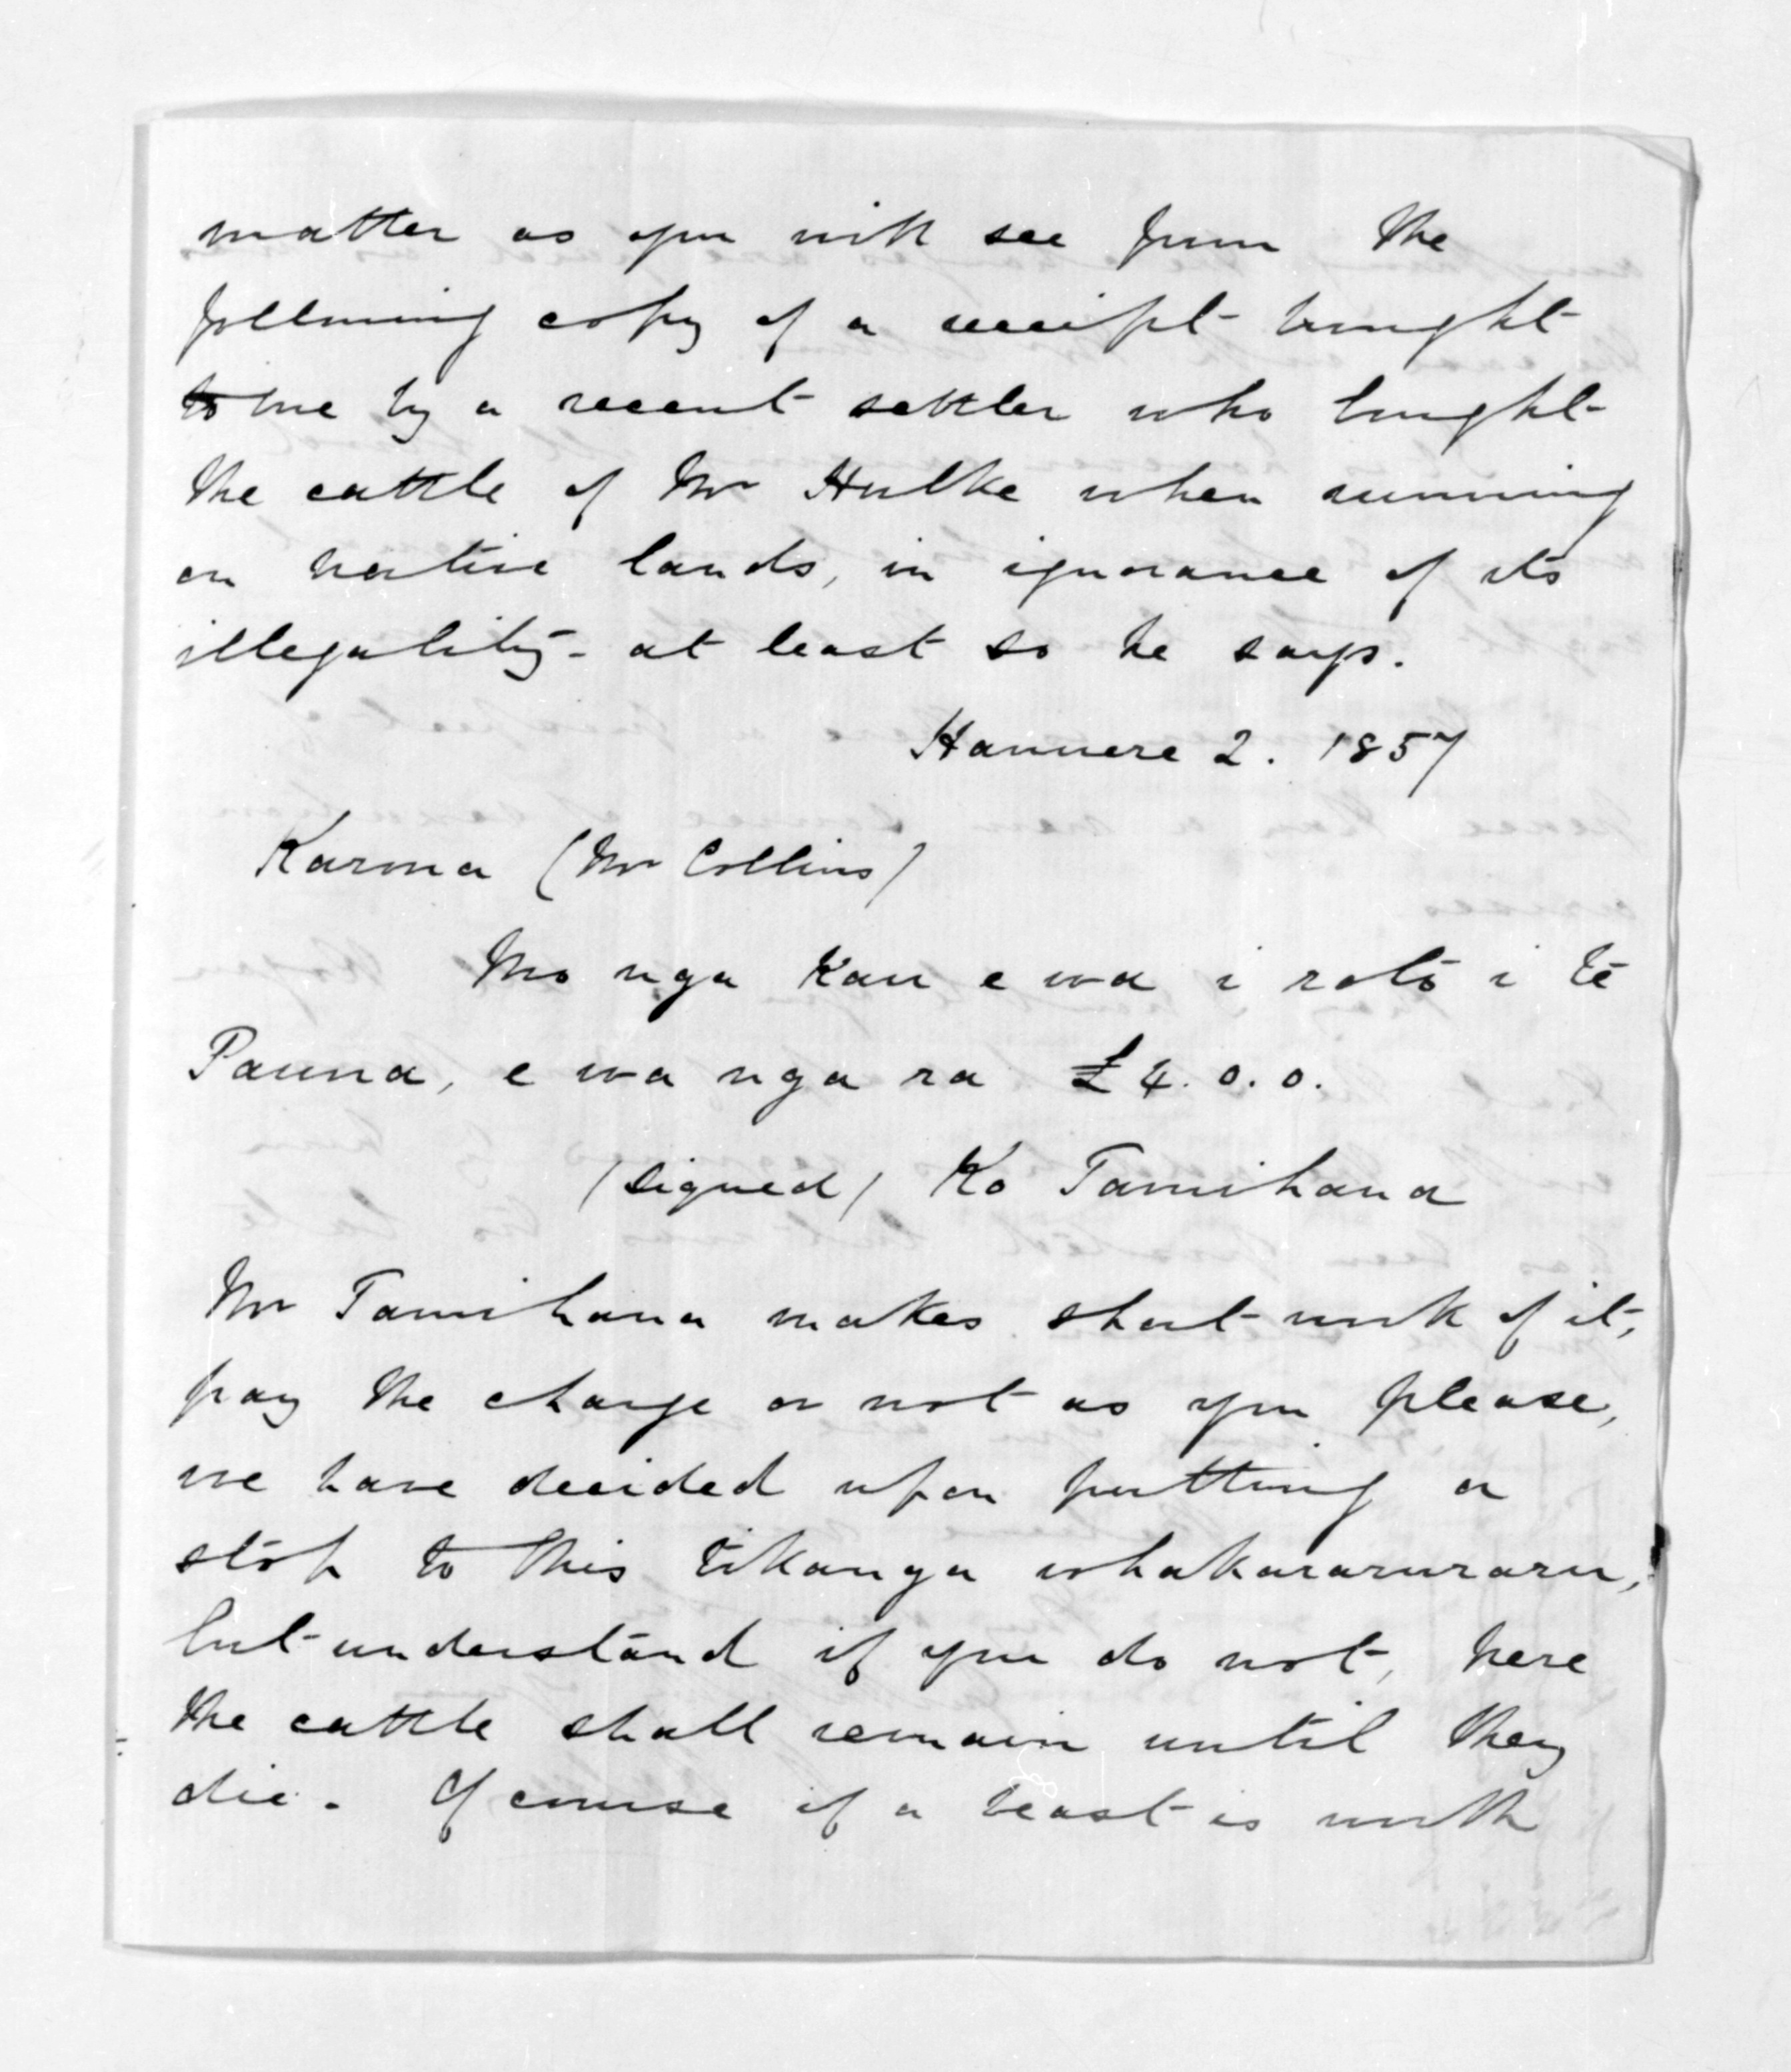 matter as you will see from the
following copy of a receipt brought
to me by a recent settler who bought
the cattle of Mr Hulke when running
on native lands, in ignorance of its
illegality - at least so he says.
Hanuere 2. 1857
Karina (Mr Collins)
Mo nga Kau e wa i roto i te
Pauna, e wa nga ra £4. 0. 0.
(signed) Ko Tamihana
Mr Tamihana makes short work of it,
pay the charge or not as you please,
we have decided upon putting a
stop to this tikanga whakararuraru,
but understand if you do not, here
the cattle shall remain until they
die. Of course if a beast is worth